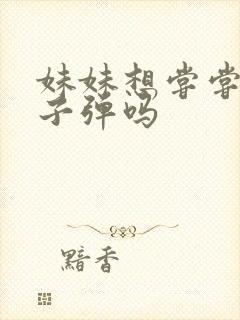 妹妹想尝尝
子弹吗
黯香